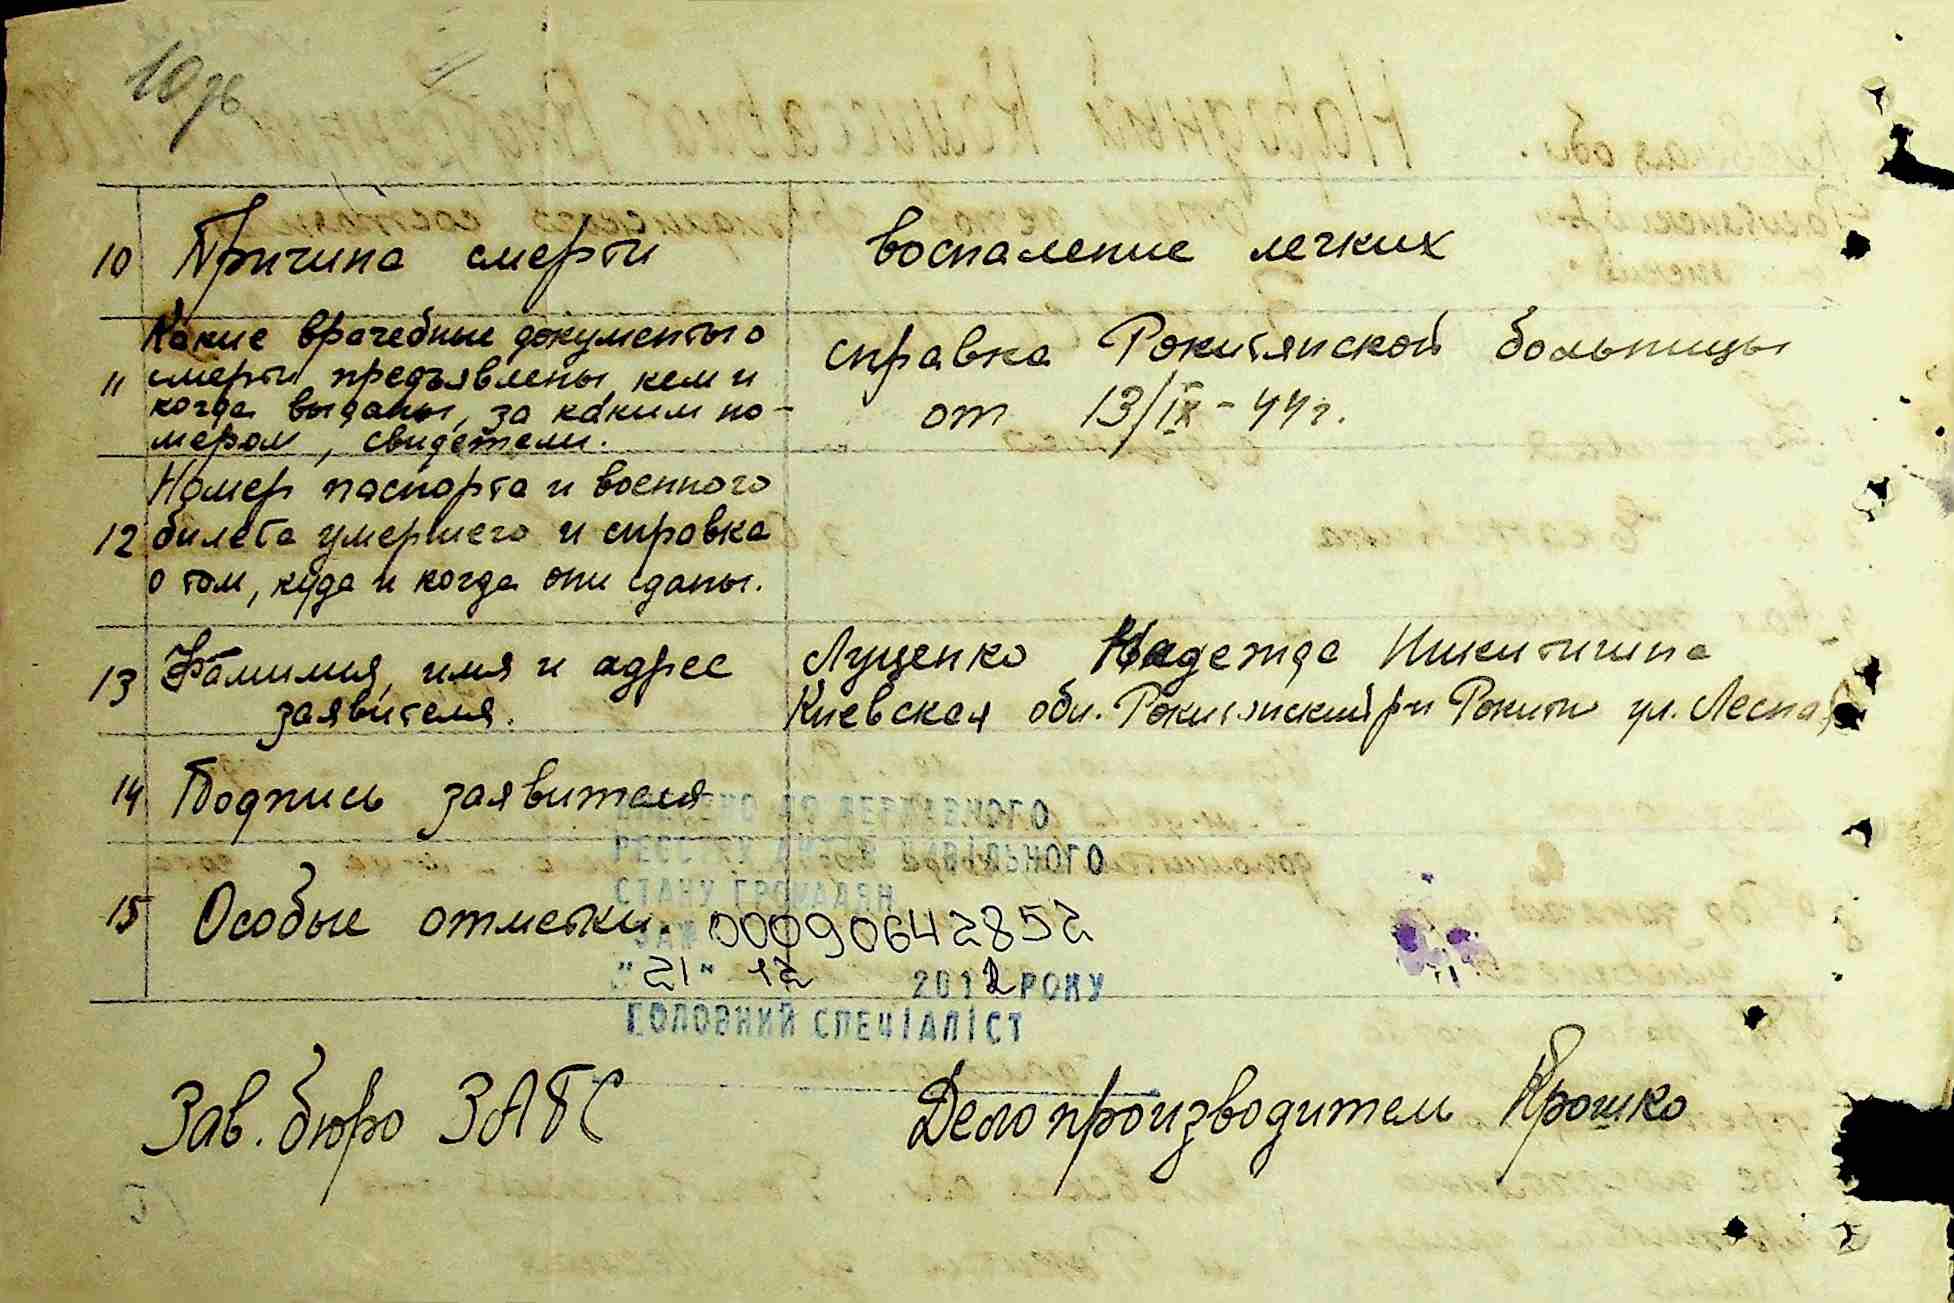 10 Причина смерти воспаление легких
Какие врачебные документы о
11 смерти предъявлены, кем и
когда выданы, за каким но-
мером, свидетели.
справка Рокитянской больницы
от 13/IX-44г.
Номер паспорта и военного
12 билета умершего и справка
о том, куда и когда они сданы.
13 Фамилия, имя и адрес
заявителя.
Луценко Надежда Никитична
Киевская обл. Рокитянский р-н Рокитн ул. Лесная
14 Подпись заявителя
15 Особые отметки.
ВНЕСЕНО ДО ДЕРЖАВНОГО
РЕЄСТРУ АКТІВ ЦИВІЛЬНОГО
СТАНУ ГРОМАДЯН
ЗА № 00090642852
"21" 12 2012 РОКУ
ГОЛОВНИЙ СПЕЦІАЛІСТ
Зав. бюро ЗАГС Делопроизводитель Крошко